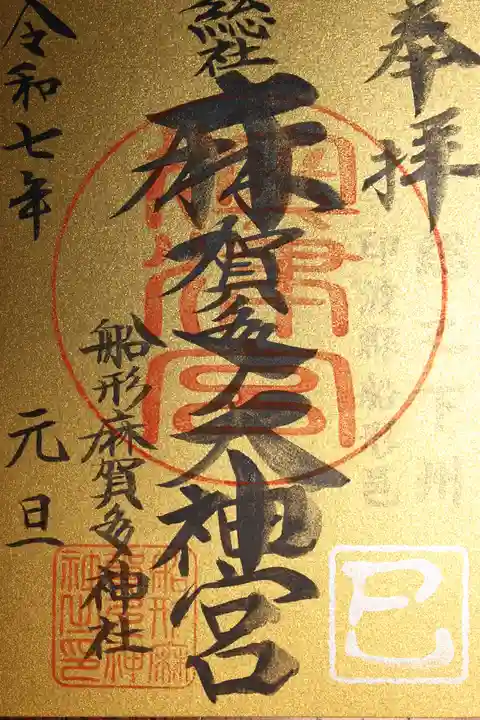 奉拝
総社
麻賀多大神宮
船形麻賀多神社
令和七年
元旦
巳